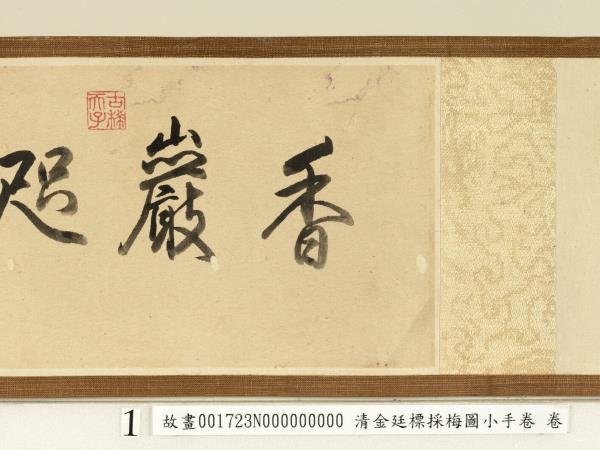 香巖咫
古稀天子
1 故畫001723N000000000 清金廷標採梅圖小手卷 卷